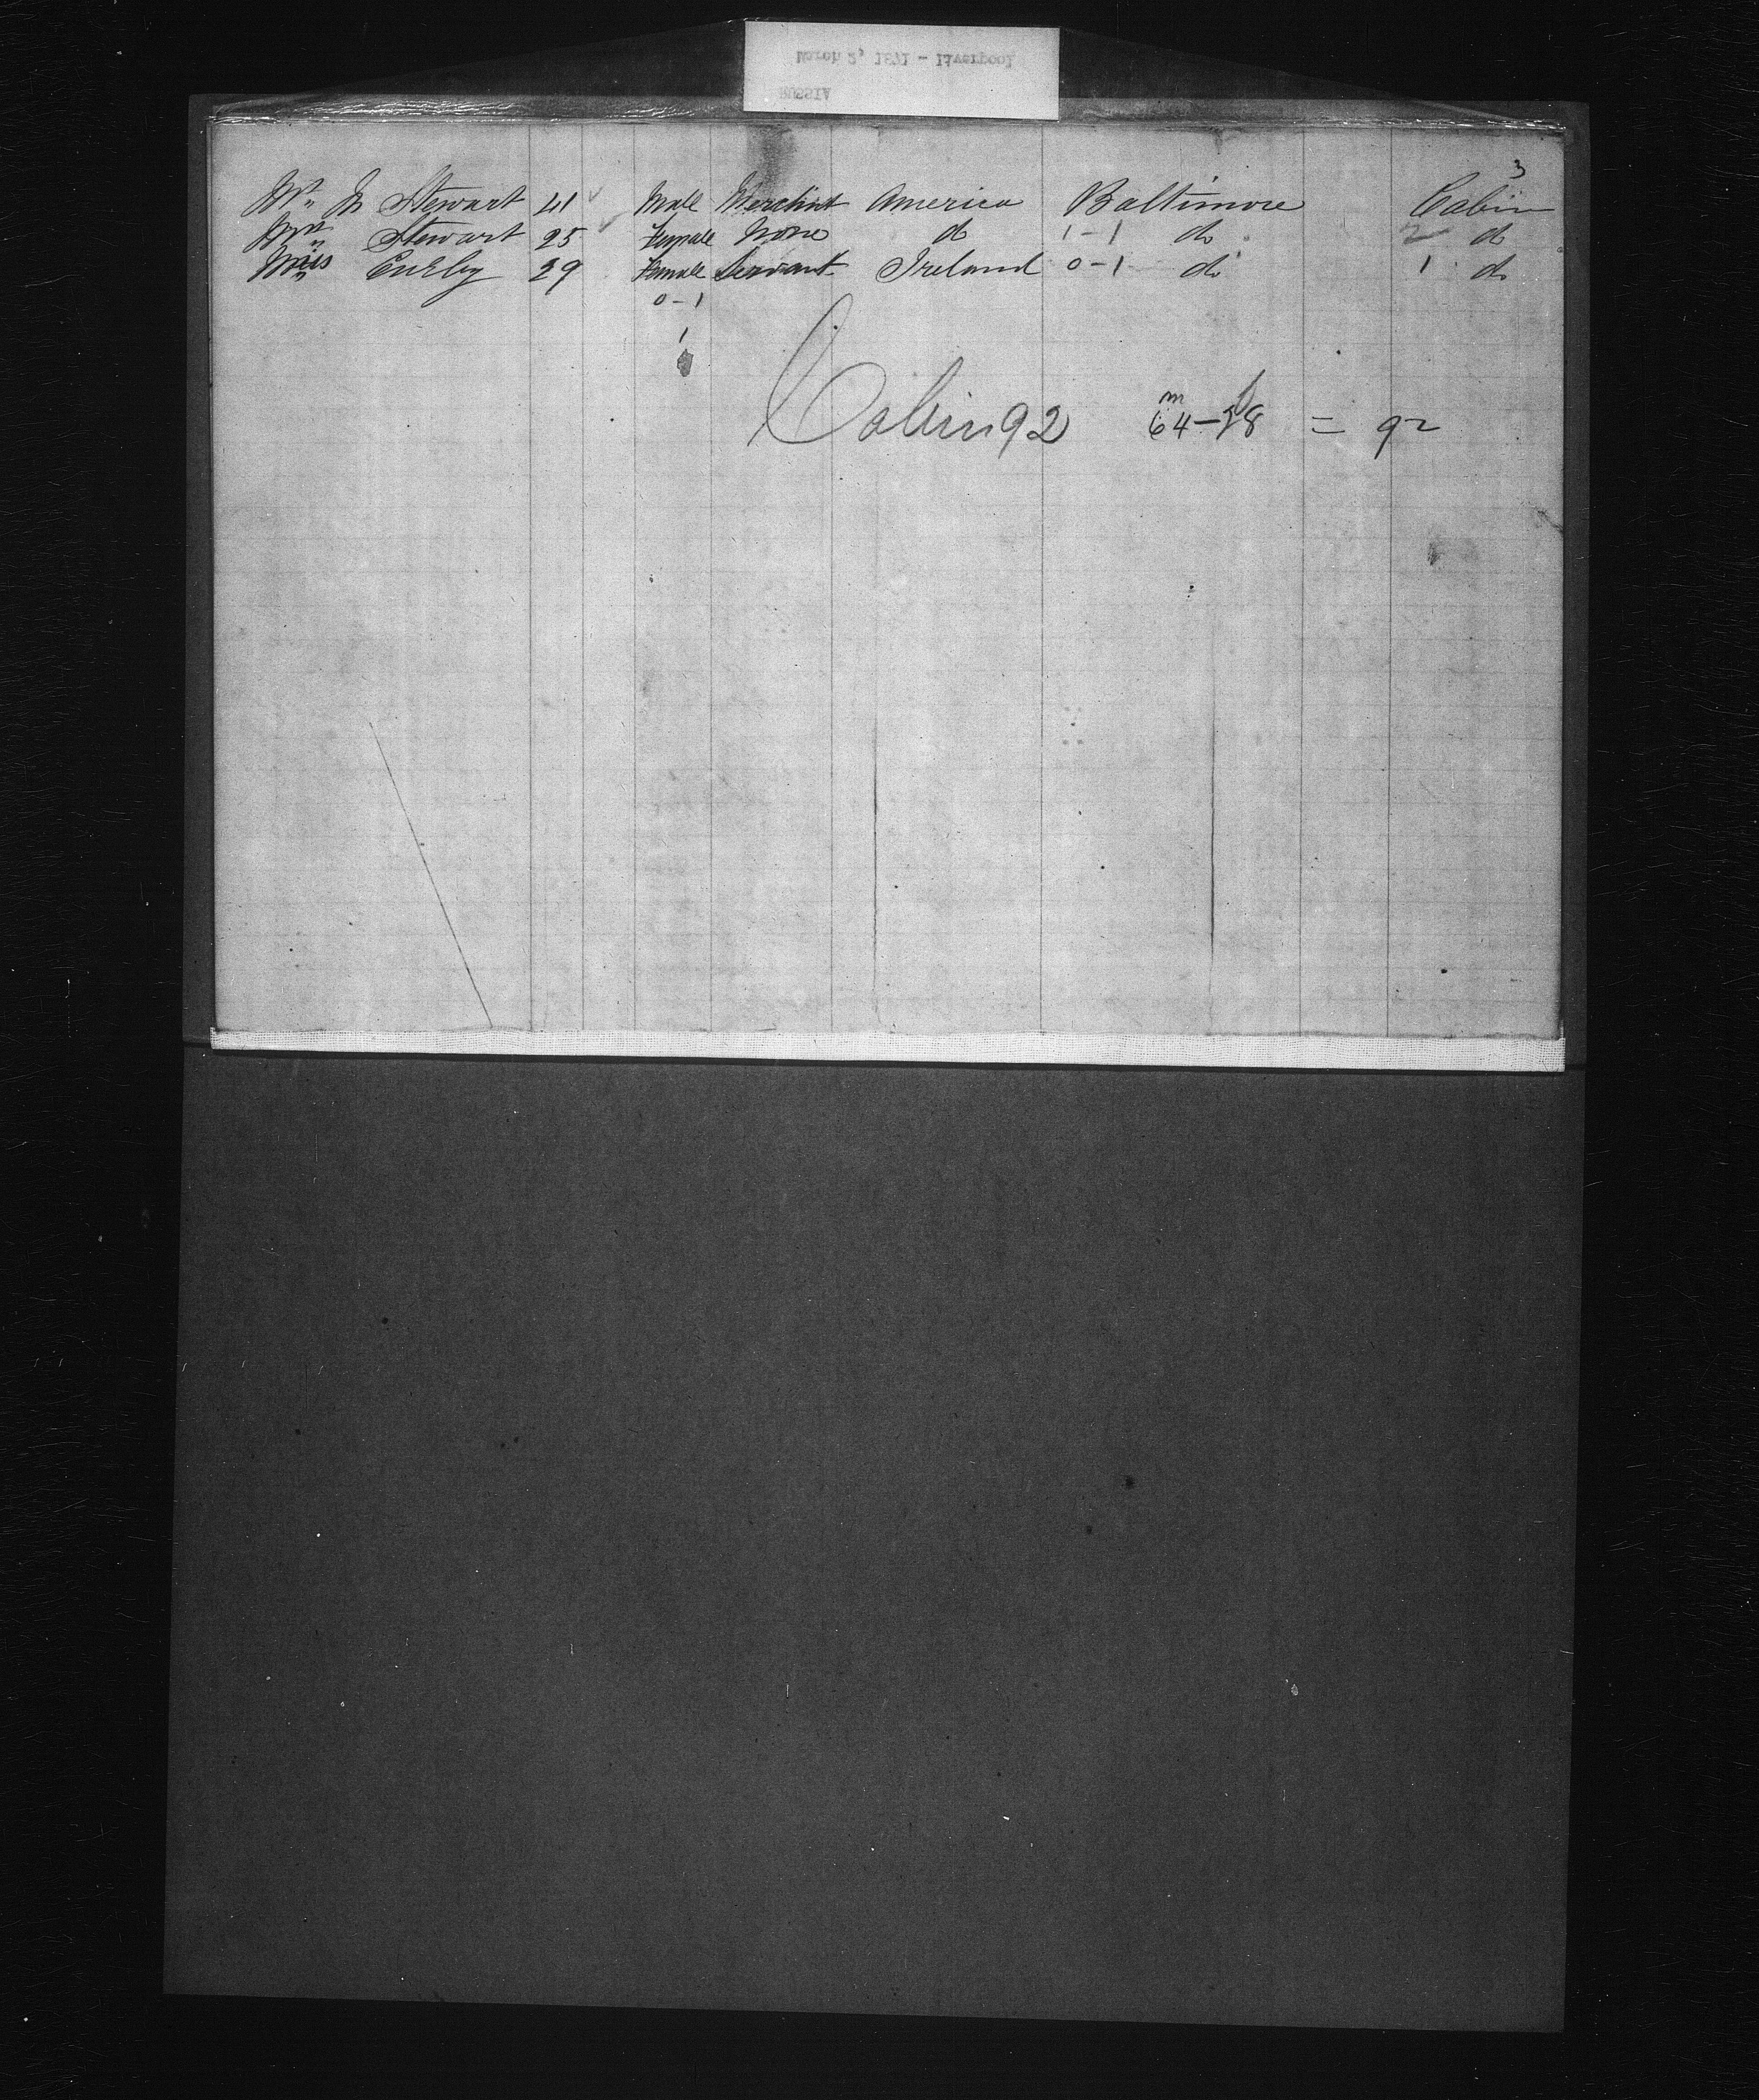 RUSSIA
March 2, 1871 - Liverpool
3
Mr Stewart 41 Male Merchant America Baltimore Cabin
Mrs Stewart 25 Female None do 1-1 do 2 do
Miss 29 Female Servant Ireland 0-1 do 1 do
0-1
1
Cabin 92 m 64 - f 28 = 92